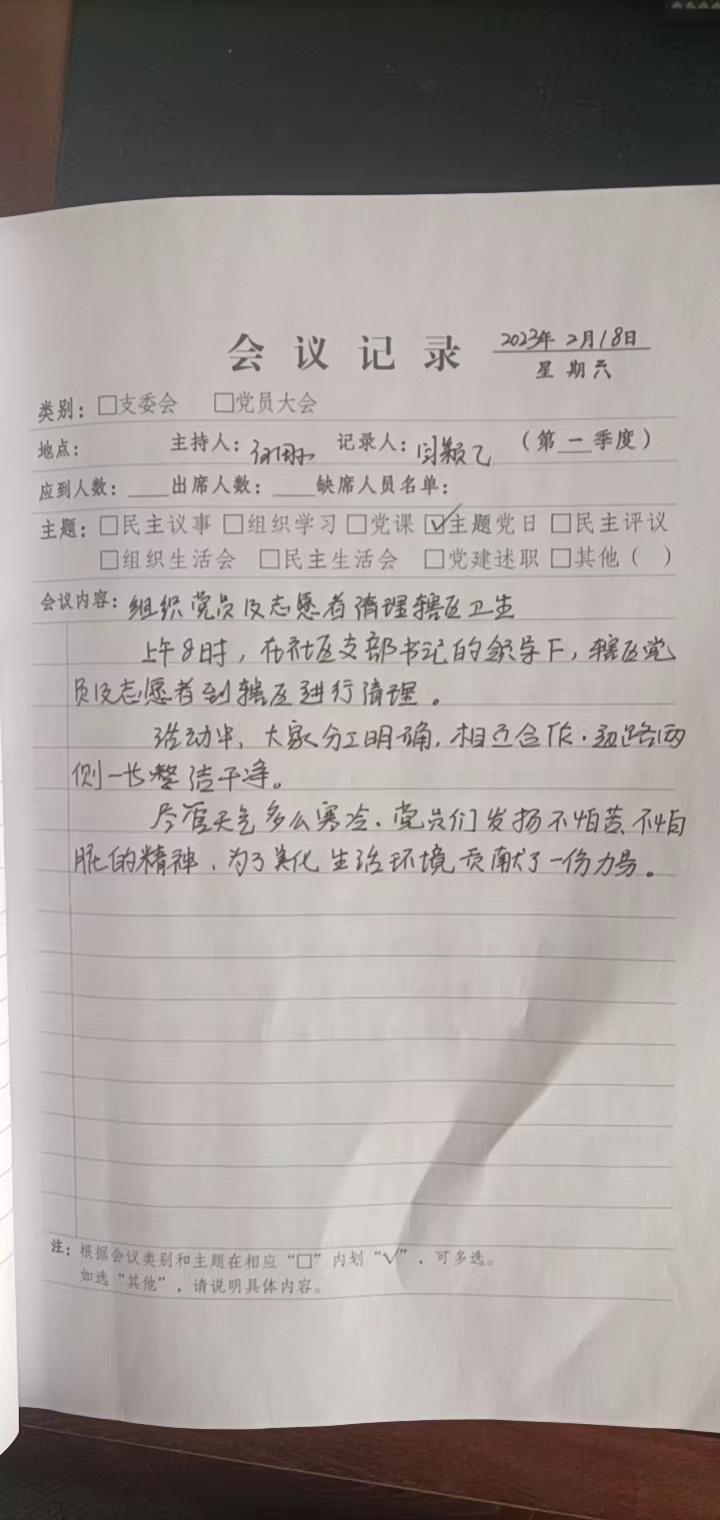 会议记录 2023年2月18日
星期六
类别：□支委会 □党员大会
地点： 主持人： 记录人：闫颖乙 （第一季度）
应到人数：____出席人数：____缺席人员名单：
主题：□民主议事 □组织学习 □党课 ☑主题党日 □民主评议
□组织生活会 □民主生活会 □党建述职 □其他（ ）
会议内容：组织党员及志愿者清理辖区卫生
上午8时，在社区支部书记的领导下，辖区党
员及志愿者到辖区进行清理。
活动中，大家分工明确，相互合作，道路两
侧一片整洁干净。
尽管天气多么寒冷，党员们发扬不怕苦、不怕
脏的精神，为了美化生活环境贡献了一份力量。
注：根据会议类别和主题在相应“□”内划“√”，可多选。
如选“其他”，请说明具体内容。